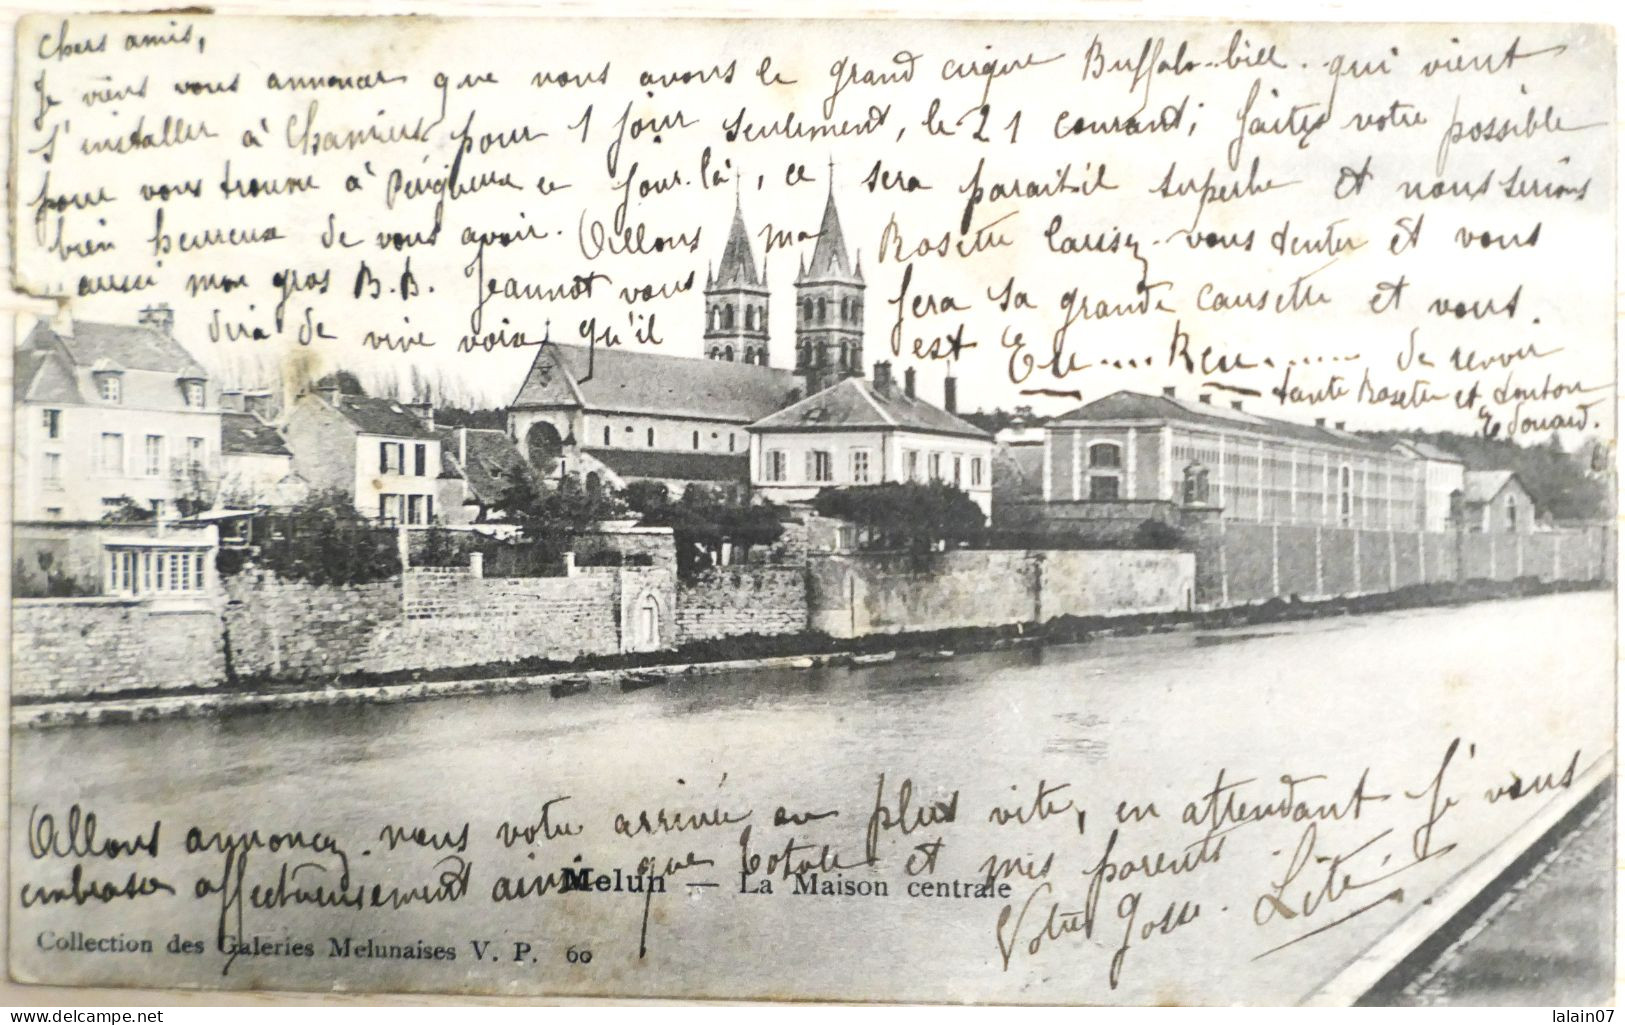 Chers amis,
Je viens vous annoncer que nous avons le grand cirque Buffalo-bill. qui vient
s'installer à Chamiers pour 1 jour seulement, le 21 courant; faites votre possible
pour vous trouver à Périgueux ce jour-là, ce sera parait-il superbe et nous serions
bien heureux de vous avoir. Allons ma Rosette laissez-vous tenter et vous
aussi mon gros B.B. Jeannot vous fera sa grande causette et vous
dira de vive voix qu'il est
de revoir
tante Rosette et tonton
Edouard.
Allons annoncez-nous votre arrivée au plus vite, en attendant je vous
embrasse affectueusement ainsi que et mes parents.
Votre Gosse.
Melun — La Maison centrale
Collection des Galeries Melunaises V. P. 60
https://www.delcampe.net
lalain07